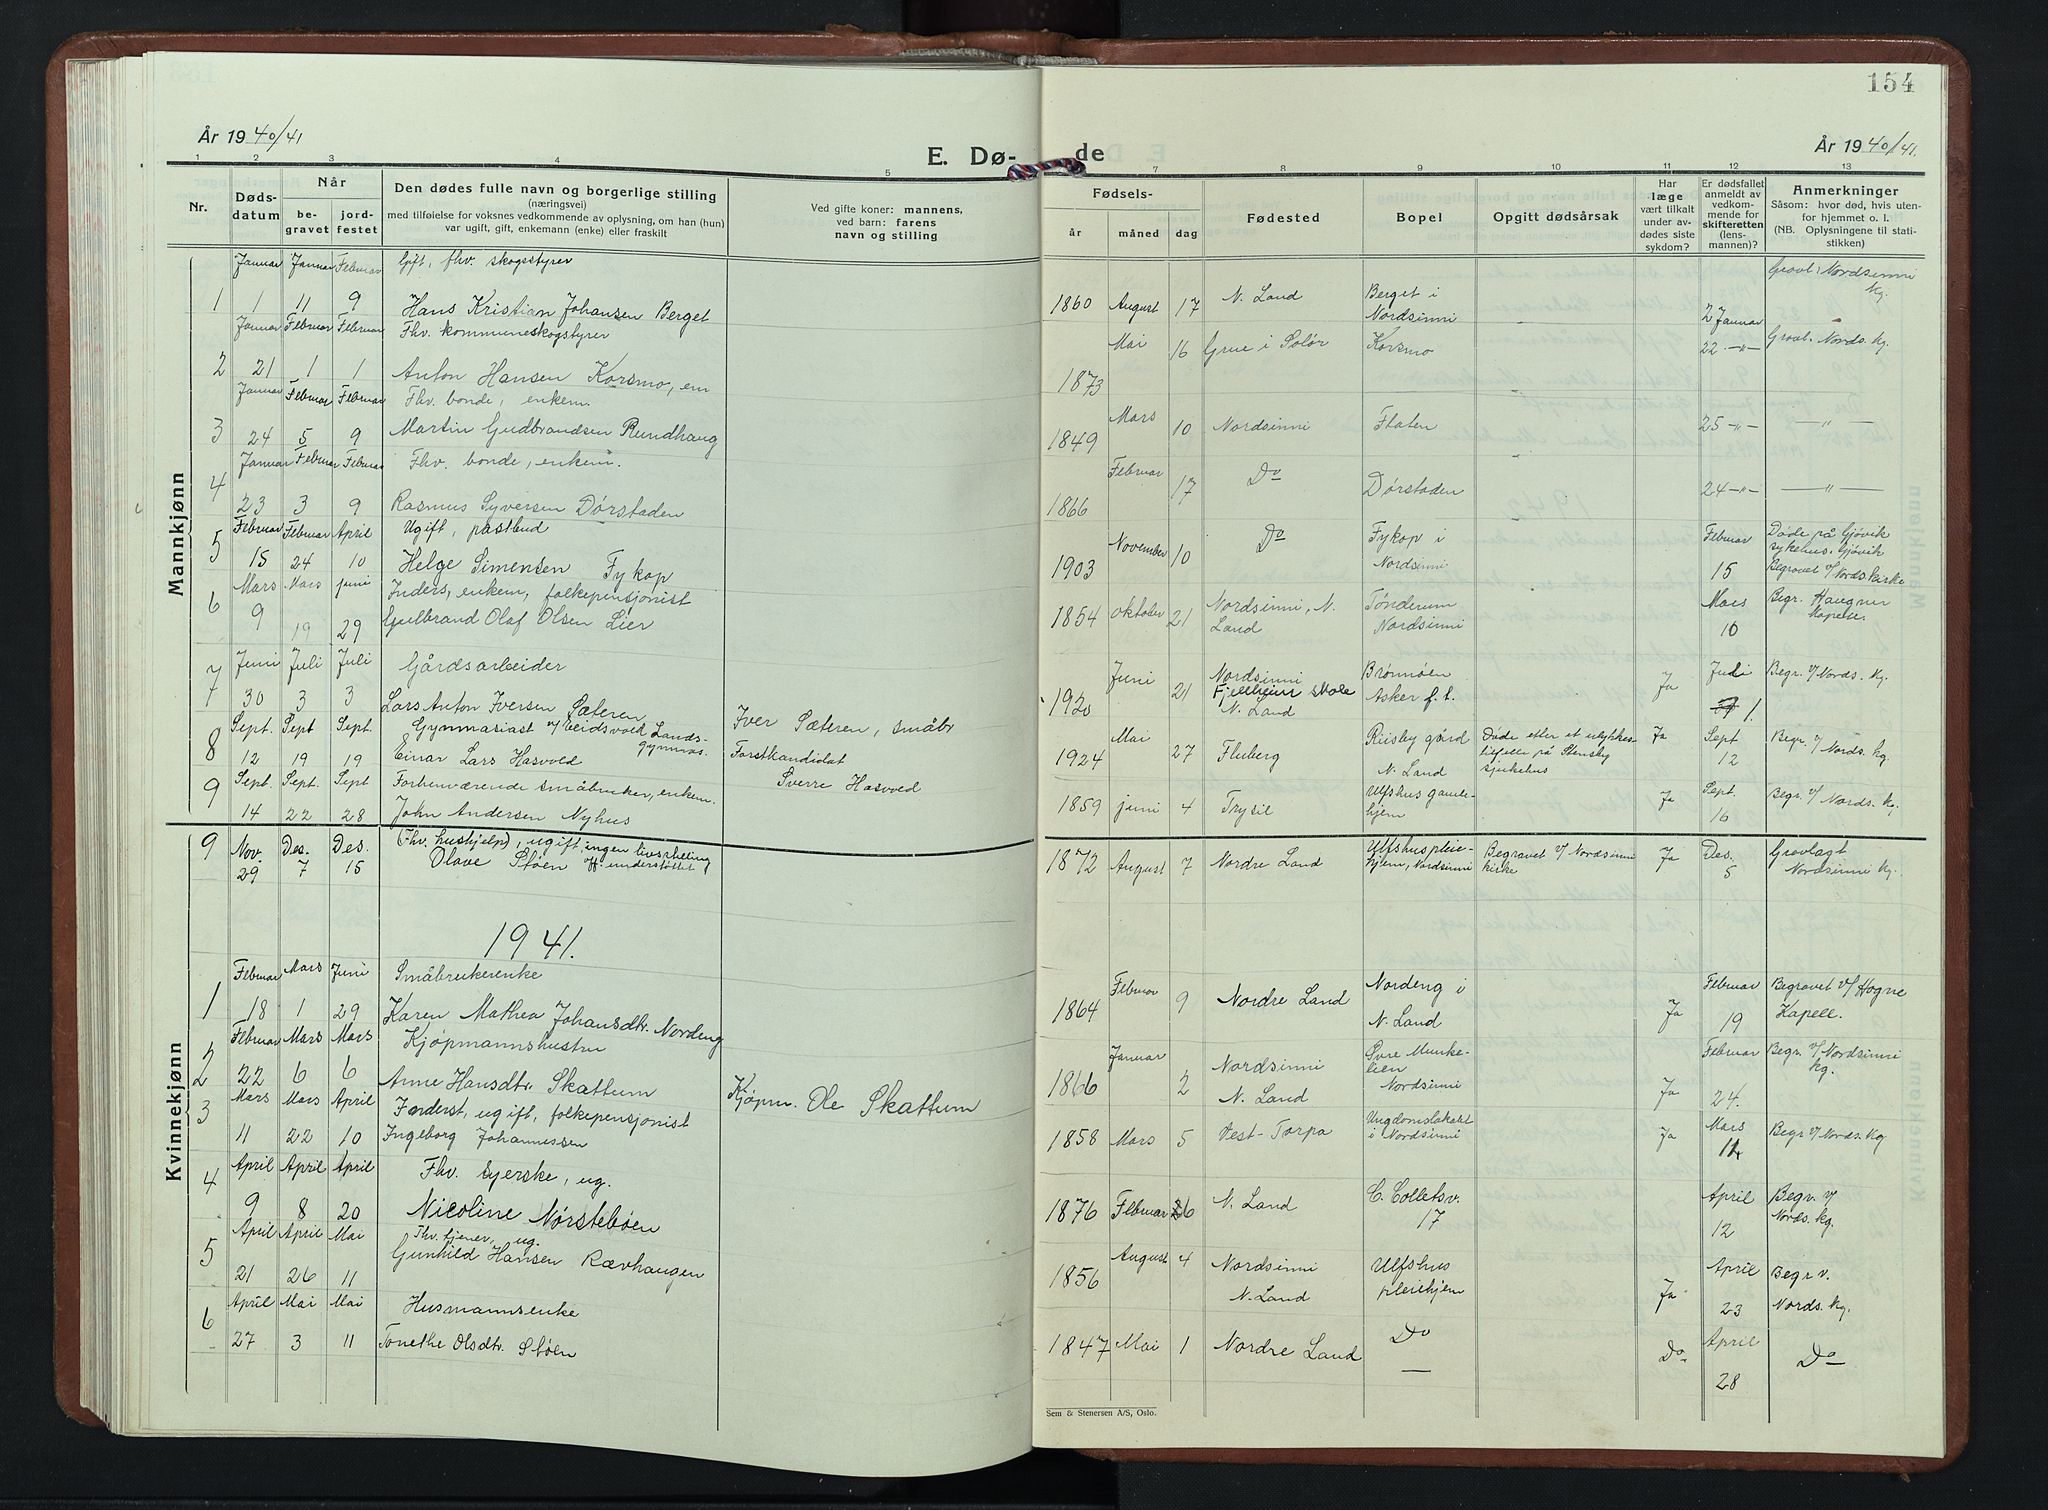 154
År 1940/41
E. Dø-
de
År 1940/41.
1 2 3 4 5 7 8 9 10 11 12 13
Nr.
Døds-
datum
Når
be-
gravet
jord-
festet
Den dødes fulle navn og borgerlige stilling
(næringsvei)
med tilføielse for voksnes vedkommende av oplysning, om han (hun)
var ugift, gift, enkemann (enke) eller fraskilt
Ved gifte koner: mannens,
ved barn: farens
navn og stilling
Fødsels-
år måned dag
Fødested
Bopel
Opgitt dødsårsak
Har
læge
vært tilkalt
under av-
dødes siste
sykdom?
Er dødsfallet
anmeldt av
vedkom-
mende for
skifteretten
(lens-
mannen)?
Anmerkninger
Såsom: hvor død, hvis uten-
for hjemmet o. l.
(NB. Oplysningene til stati-
stikken)
Mannkjønn
Januar Januar Februar Gift, fhv. skogstyrer
1 1 11 9 Hans Kristian Johansen Berget
1860 August 17 N. Land Berget i
Nordsinni
2 Januar
Gravl. Nordsinni
kg.
Januar Februar Februar Fhv. kommuneskogstyrer
2 21 1 1 Anton Hansen Korsmo, em
1873 Mai 16 Grue i Solør Korsmo 22 -"- Gravl. Nords. kg.
Januar Februar Februar Fhv. bonde, enkem.
3 24 5 9 Martin Gudbrandsen Rundhaug
1849 Mars 10 Nordsinni Flaten 25 -"- -"-
Januar Februar Februar Fhv. bonde, enkem.
4 23 3 9 Rasmus Syversen Dørstaden
1866 Februar 17 Do Dørstaden 24 -"- -"-
Februar Februar April Ugift, postbud
5 15 24 10 Helge Simensen Fykop
1903 November 10 Do Fykop i
Nordsinni
Februar
15
Døde på Gjøvik
sykehus. Gjøvik
Begravet v/ Nords. kirke
Mars Mars juni Inders, enkem, folkepensjonist
6 9 19 29 Gulbrand Olaf Olsen Lier
1854 oktober 21 Nordsinni, N.
Land
Tønderum
Nordsinni
Mars
10
Begr. Haugner
Kapell.
Juni Juli Juli Gårdsarbeider
7 30 3 3 Lars Anton Iversen Sæteren
Iver Sæteren, småbr
1920 Juni 21 Nordsinni
Fjellheim skole
N. Land
Brønnøen
Asker f. t.
Ja
Juli
1.
Begr. v/ Nords. kg.
Sept. Sept Sept. Gymnasiast v/ Eidsvold Lands-
gymnas.
8 12 19 19 Einar Lars Hasvold
Forstkandidat
Sverre Hasvold
1924 Mai 27 Fluberg Riisby gård
N. Land
Døde etter et ulykkes-
tilfelle på Stensby
sjukehus
Ja
Sept
12
Begr. v/ Nords. kg.
Sept. Sept. Sept Forhenværende småbruker, enkem.
9 14 22 28 John Andersen Nyhus
1859 juni 4 Trysil Ulfshus gamle-
hjem
Ja
Sept.
16
Begr. v/ Nords. kg.
Kvinnekjønn
9 Nov. Des. Des. (Fhv. hushjelp), ugift, ingen livsstilling
29 7 15 Olave Støen off. understøttet
1872 August 7 Nordre Land Ulfshus pleie-
hjem, Nordsinni
Begravet v/ Nordsinni
kirke
Ja
Des.
5
Gravlagt
Nordsinni kg.
1941.
Februar Mars Juni Småbrukerenke
1 18 1 29 Karen Mathea Johansdtr. Nordeng
1864 Februar 9 Nordre Land Nordeng i
N. Land
Ja
Februar
19
Begravet v/ Hogne
Kapell.
Februar Mars Mars Kjøpmannshustru
2 22 6 6 Anne Hansdtr. Skattum
Kjøpm. Ole Skattum
1866 Januar 2 Nordsinni
N. Land
Øvre Munke-
lien
Nordsinni
Ja
Februar
24.
Begr. v/ Nordsinni
kg.
Mars Mars April Inderst, ugift, folkepensjonist
3 11 22 10 Ingeborg Johannessen
1858 Mars 5 Vest-Torpa Ungdomslokalet
i Nordsinni
Ja
Mars
Begr v/ Nords. kg
April April April Fhv. syerske, ug.
4 9 8 20 Nicoline Nørstebøen
1876 Februar 26 N. Land C. Colletsv.
17
April
12
Begr. v/
Nords. kg.
April April Mai Fhv. tjener, ug.
5 21 26 11 Gunhild Hansen Rævhaugen
1856 August 4 Nordsinni
N. Land
Ulfshus
pleiehjem
Ja
April
23
Begr v.
Nords. kg.
April Mai Mai Husmannsenke
6 27 3 11 Tonethe Olsdtr. Støen
1847 Mai 1 Nordre Land Do Do
April
28
Do
Sem & Stenersen A/S, Oslo.